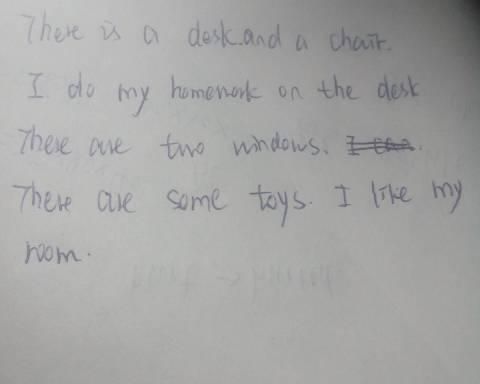 There is a desk.and a chair.
I do my homework on the desk
There are two windows.
There are some toys. I like my
room.